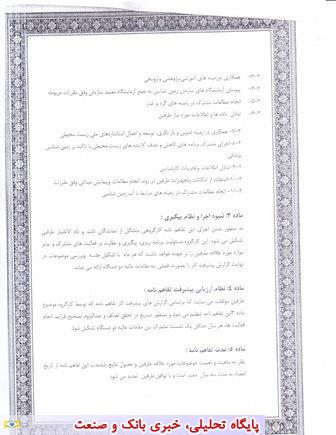 ۳-۳- همکاری درزمینه های آموزشی،پژوهشی وترویجی
۴-۳- پیوستن آزمایشگاه های سازمان زمین شناسی به مجمع آزمایشگاه معتمد سازمان وفق مقررات مربوطه
۵-۳- انجام مطالعات مشترک در زمینه های گرد و غبار
۶-۳- تبادل داده ها و اطلاعات مورد نیاز طرفین
۷-۳- همکاری در زمینه تدوین و باز نگری، توسعه و اعمال استانداردهای ملی زیست محیطی
۸-۳- اجرای مشترک برنامه های کاهش و حذف آلاینده های زیست محیطی با تاکید بر زمین شناسی
پزشکی
۹-۳- تبادل اطلاعات وتجربیات کارشناسی
۱۰-۳- استفاده از امکانات وتجهیزات طرفین در روند انجام مطالعات وپیمایش میدانی وفق مقررات
۱۱-۳- انجام مطالعات مشترک در زمینه های مرتبط با آب زمین شناسی
ماده ۳: شیوه اجرا و نظام پیگیری :
به منظور حسن اجرای این تفاهم نامه کارگروهی متشکل از نمایندگان ثابت و تام الاختیار طرفین
تشکیل می شود. این کارگروه مسئولیت برنامه ریزی، پیگیری و نظارت بر فعالیت های مشترک و سایر
موارد مورد علاقه طرفین را بر عهده خواهد داشت که هر ماه با تشکیل جلسه وبررسی موضوعات در
نهایت گزارش پیشرفت کار را بصورت فصلی به مقامات عالیه دو دستگاه ارائه می نماید.
ماده ٤: نظام ارزیابی پیشرفت تفاهم نامه :
طرفین موافقت می نمایند که براساس گزارش های پیشرفت کار تفاهم نامه که توسط کارگروه موضوع
ماده ۳این تفاهم نامه تنظیم می شود و بمنظور تسریع در تحقق اهداف و عندالزوم تصحیح فرآیند انجام
فعالیت ها، هر سال حداقل یک نشست مشترک بین مقامات عالیه دو دستگاه تشکیل شود.
ماده ۵: مدت تفاهم نامه :
نظر به ماهیت و اهمیت موضوعات مورد علاقه طرفین و حصول نتایج مدت این تفاهم نامه از تاریخ
امضاء به مدت سه سال معتبر است و با توافق طرفین تمدید می شود.
پایگاه تحلیلی، خبری بانک و صنعت